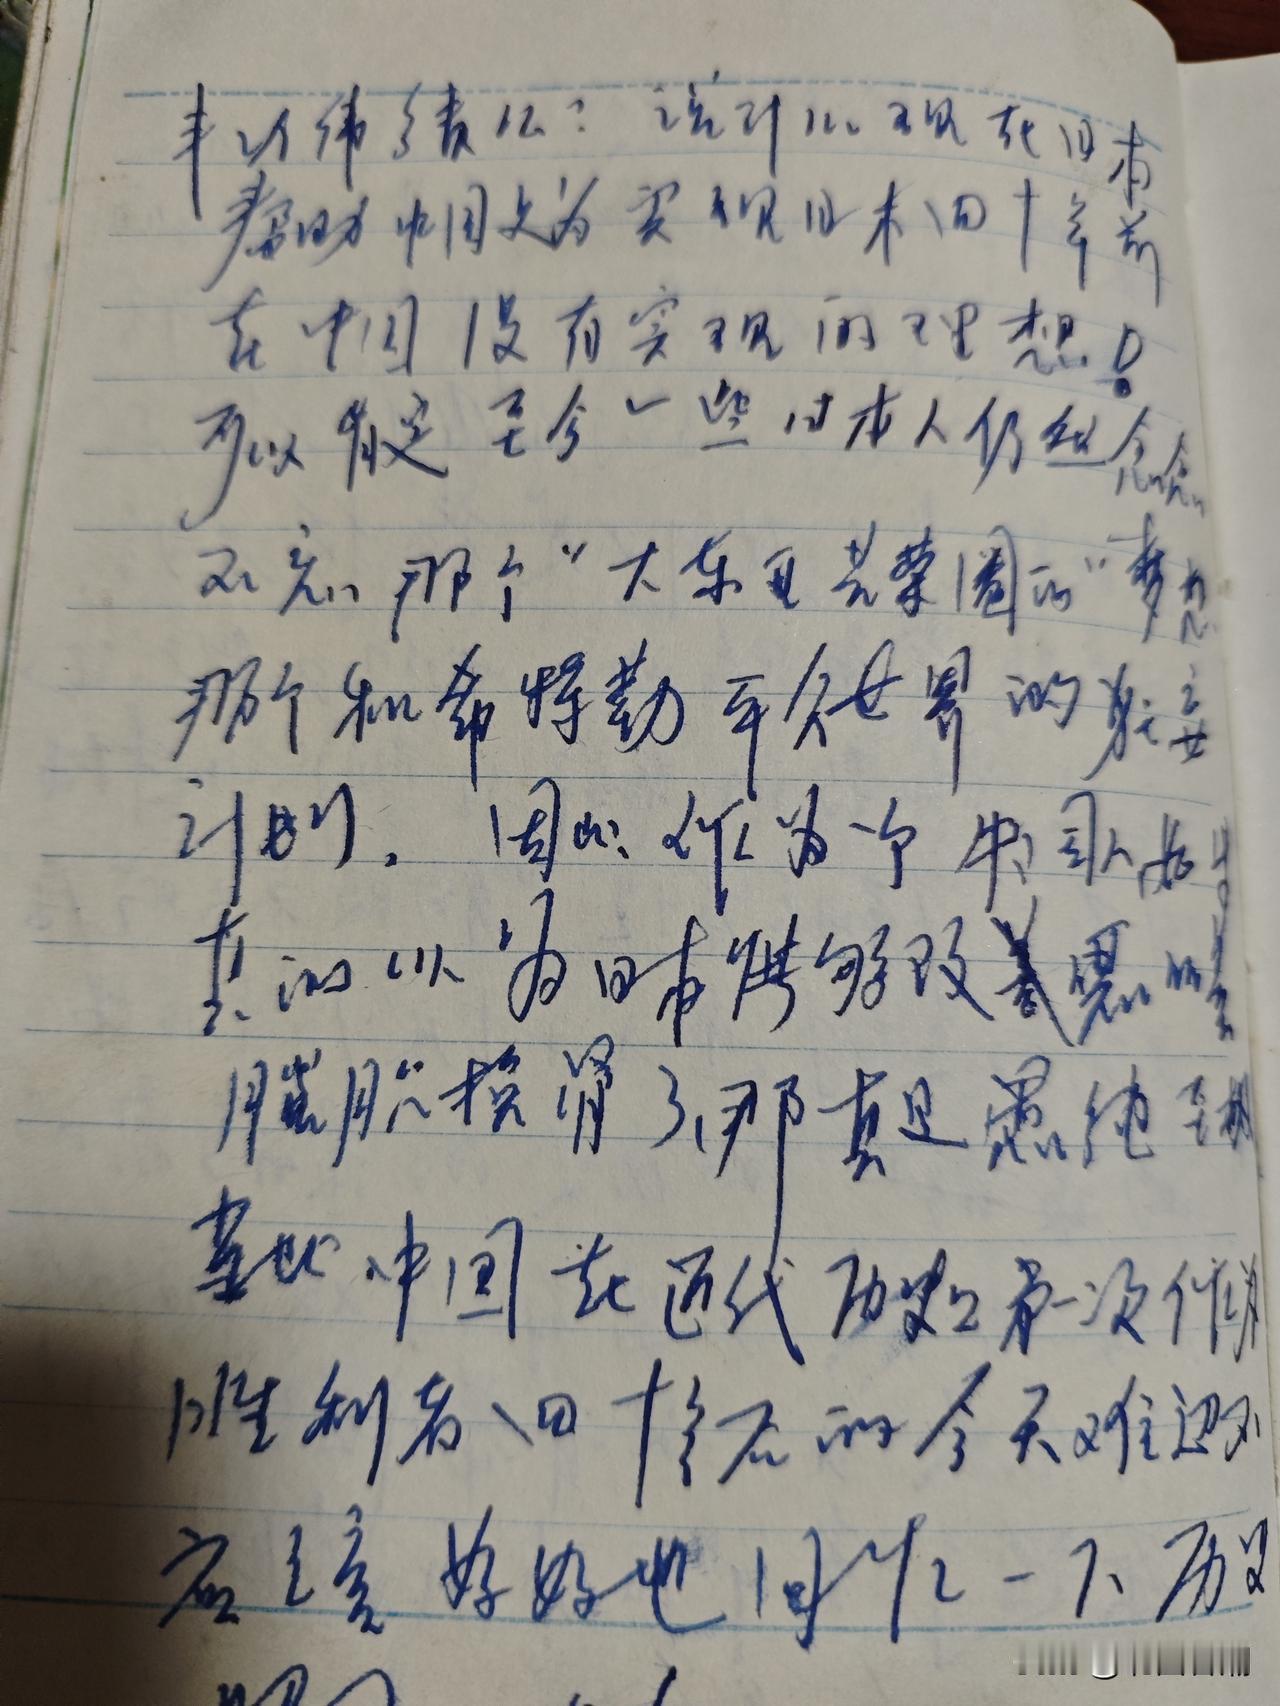 丰功伟绩么?设计么现在日本
帮助中国人为实现日本四十年前
在中国没有实现的理想!
可以肯定至今一些日本人仍然念念
不忘那个“大东亚共荣圈的”梦想
那个和希特勒平分世界的狂妄
计划。因此作为一个中国人如
真的以为日本能够改善
那真是愚钝至极
基地中国在近代历史上第一次作为
胜利者四十年后的今天难道不
应该好好地回忆一下历史